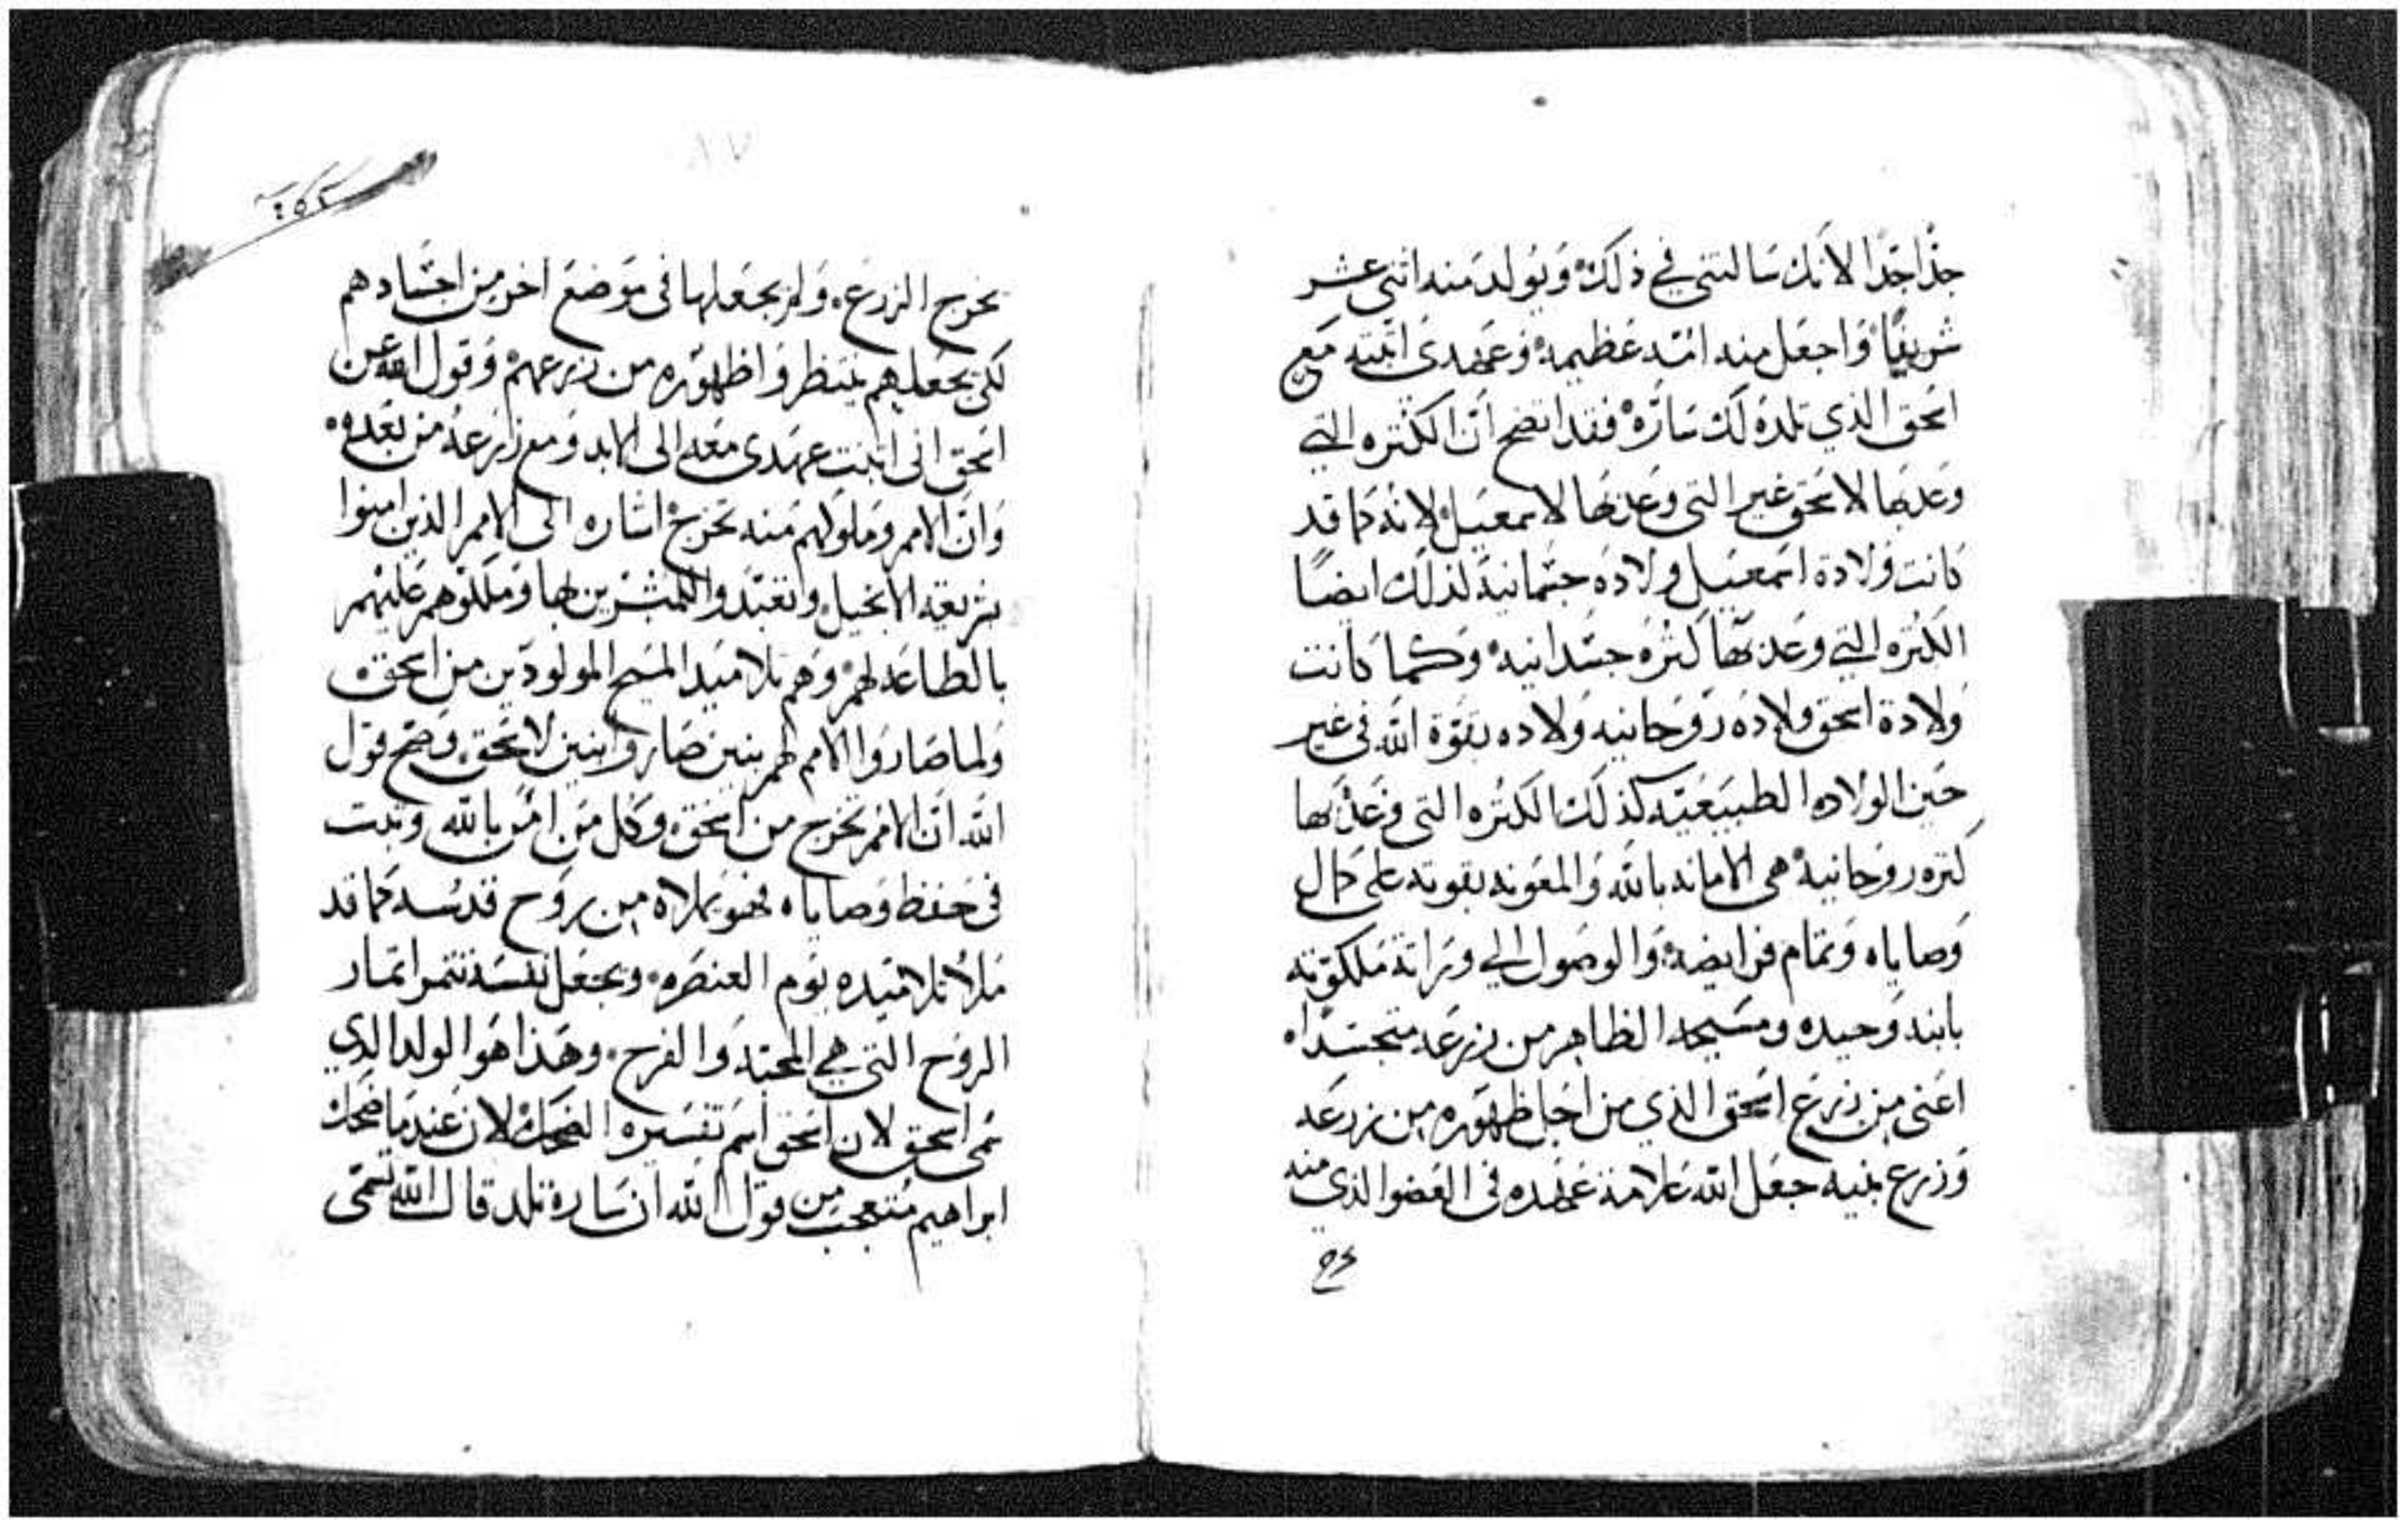 جدًا جدًا لانك سالتني في ذلك وَيُولد منه اثني عشر
شريفًا وَاجعَل منه امّه عَظيمه وَعَهدي اثبته مَع
اسحق الذي تلده لَك سَارّه فقد اتضح انّ الكتره التي
وعد بها لاسحق غير التي وَعد بها لاسمعيل لانه كما قد
كانت وُلادة اسمعيل ولاده جسمانية لذلك ايضًا
الكتره التي وعَد بها كثره جسدانيه وكما كانت
وَلادة اسحق ولاده روحانيه وَلاده بقوّة الله في غير
حَين الولاده الطبيعيّه كذلك الكتره التي وَعَد بها
كتره روحانية هي الامانه بالله وَالمعَونه بقوته على كمال
وَصاياه وَتمام فرايضه وَالوصول الي وراتة مَلكوته
بابنه وَحيده ومسَيحه الظاهر من زرعَه متجسدًا
اعَني من زرع اسَحق الذي من اجَل ظهَوره من زرعَه
وَزرع بنيه جعَل الله علامة عَهده في العَضو الذي منه
يخرج الزرع وَلم يجعَلها في مَوضع اخر من اجسَادهم
لكي يجعَلهم ينتظروا ظهوره من زرعهم وَقول الله عن
اسحق اني اثبت عهَدي معَه الى الابد وَمع زرعه من بعَده
وَانّ الامم وملوكهم منه تخرج اشاره الى الامم الذين امنوا
بشريعَة الانجيل وَاتعَبّدوا للمبشرين بها وَملكوهم عَليهم
بالطاعَه لهم وَهم تلاميد المسَيح المولودَين من اسحق
وَلما صَاروا الامم لهم بنين صَاروا بنين لاسحَق وصَح قول
الله انّ الامم تخرج من اسحَق وَكل مَن امَن بالله وَتبت
في حَفظ وَصاياه فهو يملاه من روَح قدسه كما قد
مَلأ تلاميَده يَوم العنصَره وَيجعَل نفسَه تتمر اتمار
الروَح التي هي المحبّه وَالفرح وهَذا هَو الولد الدي
سمى اسحق لان اسَحق اسم تفسَيره الضحك لان عَندمَا ضحك
ابراهيم مُتعجبَ من قول الله ان سَارة تلد قال الله تسَمّى